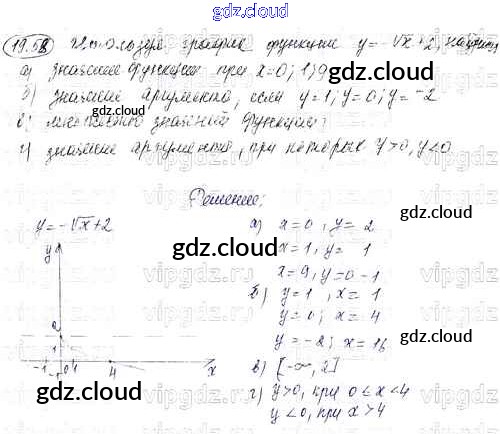 gdz.cloud
19.58 Используя график функции y=-√x+2, найдите
а) значение функции при x=0; 1; 9
gdz.cloud
б) значение аргумента, если y=1; y=0; y=-2
в) множество значений функции:
г) значение аргумента, при которых y>0, y<0
gdz.cloud
Решение:
y=-√x+2
y
2
1
-1 0 1 4 x
а) x=0, y= 2
x=1, y= 1
x=9, y=0-1
б) y=1, x= 1
y=0; x= 4
y=-2; x=16
в) [-∞, 2]
г) y>0, при 0≤x<4
y<0, при x>4
gdz.cloud
gdz.cloud
gdz.cloud
gdz.cloud
gdz.cloud
vipgdz.ru